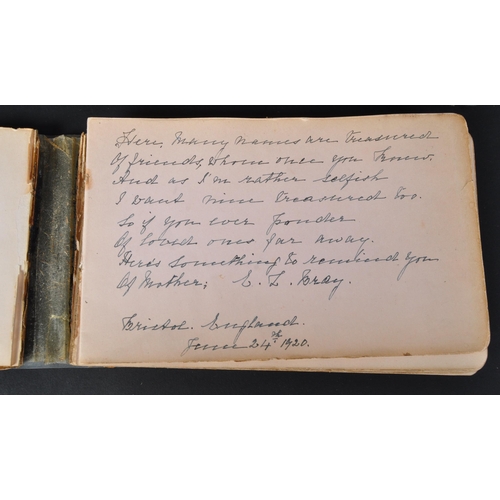 Here, Many names are treasured
Of friends, whom once you knew.
And as I'm rather selfish
I want mine treasured too.
So if you ever ponder
Of loved ones far away.
Heres something to remind you
Of Mother; E. L. Bray.
Bristol. England.
June 24th 1920.